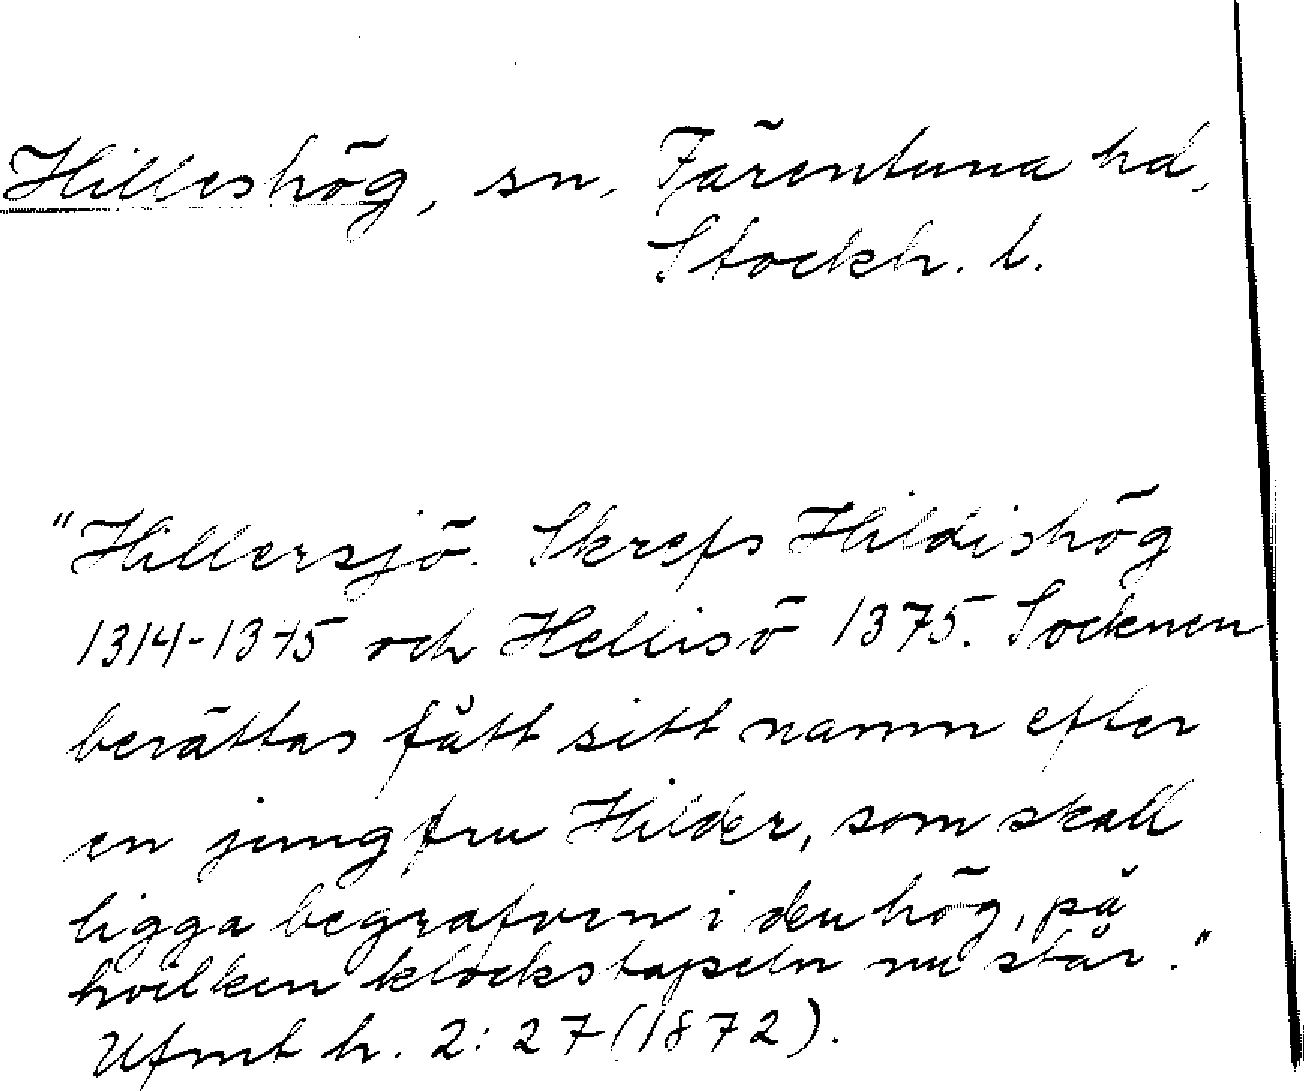 Hilleshög, sn, Färentuna hd,
Stockh. l.
"Hillersjö. Skrefs Hildishög
1314-1345 och Hellisö 1375. Socknen
berättas fått sitt namn efter
en jungfru Hilder, som skall
ligga begrafven i den hög, på
hvilken klockstapeln nu står."
Ufmt h. 2: 27 (1872).